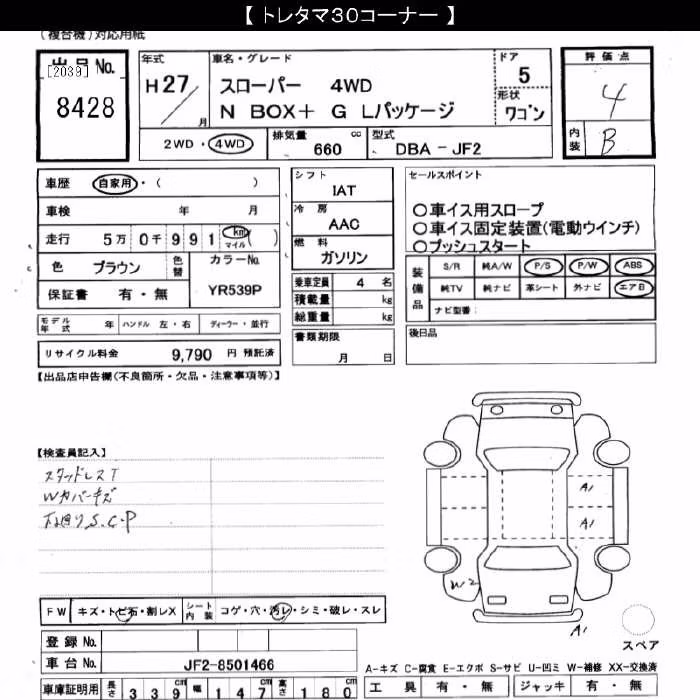 【 トレタマ30コーナー 】
(複合機)対応用紙
出品No.
[2039]
8428
年式
H27/
月
車名・グレード
スローパー 4WD
N BOX+ G Lパッケージ
ドア
5
形状
ワゴン
評価点
4
内装
B
2WD・4WD
排気量
660 cc
型式
DBA - JF2
車歴 自家用・( )
車検 年 月
走行 5万 0千 9 9 1 km マイル ( )
色 ブラウン 色替
カラーNo.
YR539P
保証書 有・無
シフト
IAT
冷房
AAC
燃料
ガソリン
乗車定員 4 名
積載量 kg
総重量 kg
書類期限
月 日
セールスポイント
○車イス用スロープ
○車イス固定装置(電動ウインチ)
○プッシュスタート
装備品
S/R 純A/W P/S P/W ABS
純TV 純ナビ 革シート 外ナビ エアB
ナビ型番:
後日品
モデル年式 年 ハンドル 左・右 ディーラー・並行
リサイクル料金 9,790 円 預託済
【出品店申告欄(不良箇所・欠品・注意事項等)】
【検査員記入】
スタッドレスT
Wカバーキズ
下回りS.C.P
A1
A1
W2
A1
スペア
FW キズ・トビ石・割レX シート内装 コゲ・穴・汚レ・シミ・破レ・スレ
登録No.
車台No. JF2-8501466
車庫証明用 長さ 3 3 9 cm 幅 1 4 7 cm 高さ 1 8 0 cm
A-キズ C-腐食 E-エクボ S-サビ U-凹ミ W-補修 XX-交換済
工具 有・無 ジャッキ 有・無